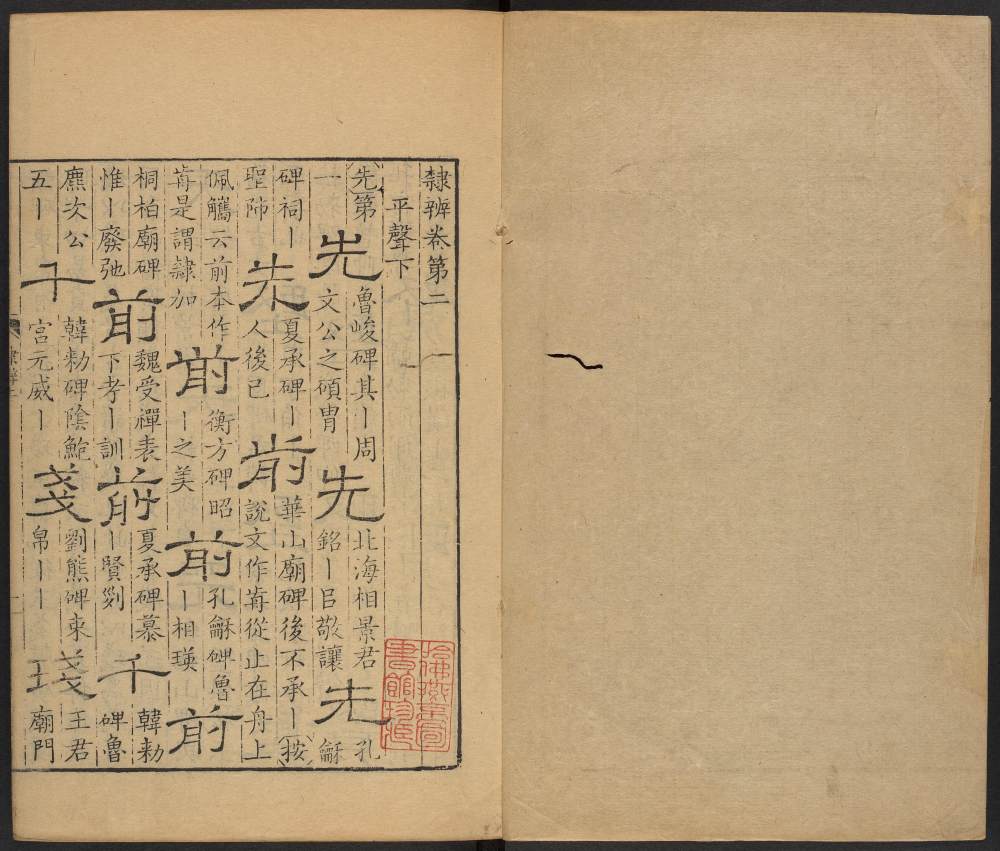 隸辨卷第二
平聲下
先第一 先 魯峻碑其丨周文公之碩胄 先 北海相景君銘丨呂敬讓 先 孔龢
碑祠丨聖師 先 夏承碑丨人後己 歬 華山廟碑後不承丨按說文作歬從止在舟上
佩觿云前本作歬是謂隸加 前 衡方碑昭丨之美 前 孔龢碑魯丨相瑛 前
桐柏廟碑惟丨廢弛 前 魏受禪表下孝丨訓 前 夏承碑慕丨賢剡 千 韓勑碑魯
麃次公五丨 千 韓勑碑陰鮑宮元威丨 戔 劉熊碑東帛丨丨 戔 王君廟門
哈佛燕京圖
書館珍藏